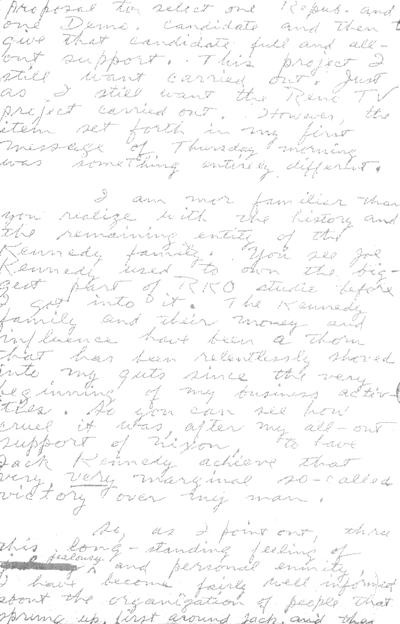 proposal to select one Repub. and
one Demo. candidate and then
give that candidate full and all-
out support. This project I
still want carried out. Just
as I still want the Reno TV
project carried out. However, the
item set forth in my first
message of Thursday morning
was something entirely different.
I am mor familier than
you realize with the history and
the remaining entity of the
Kennedy family. You see Joe
Kennedy used to own the big-
gest part of RKO studio before
I got into it. The Kennedy
family and their money and
influence have been a thorn
that has been relentlessly shoved
into my guts since the very
beginning of my business activi
ties. So you can see how
cruel it was, after my all-out
support of Nixon, to have
Jack Kennedy achieve that
very, very marginal so-called
victory over my man.
So, as I point out, thru
this long-standing feeling of
jealousy and personal enmity,
I have become fairly well informed
about the organization of people that
sprung up, first around Jack, and then